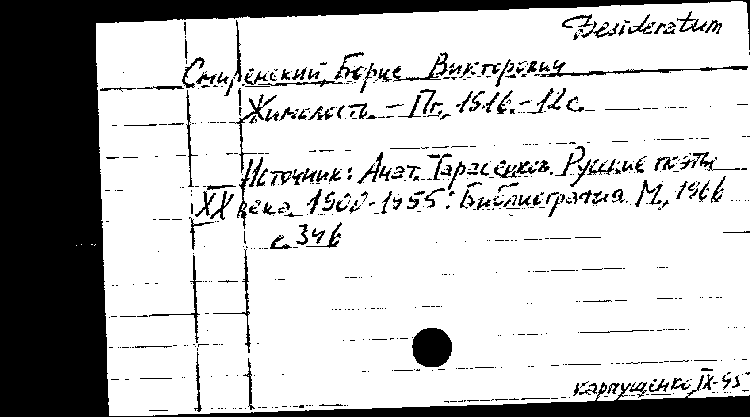 Desideratum
Смиренский, Борис Викторович
Жимолость. – Пг., 1916. – 12 с.
Источник: Анат. Тарасенков. Русские поэты
XX века. 1900-1955: Библиография. М., 1966
с. 346
Карпущенко, IX-95